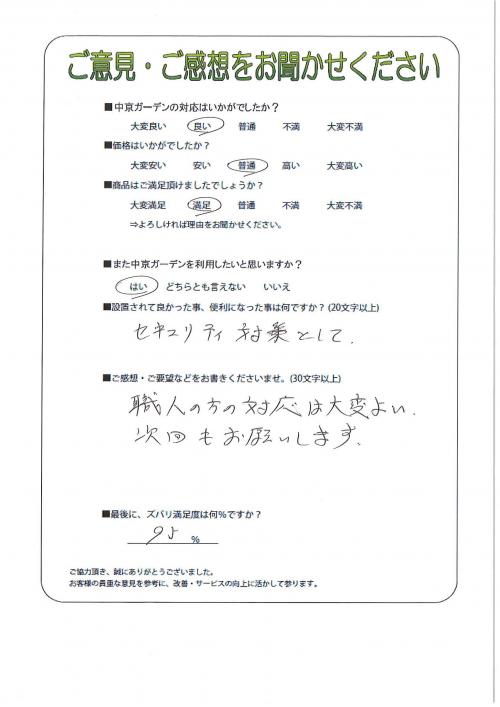 ご意見・ご感想をお聞かせください
■中京ガーデンの対応はいかがでしたか？
大変良い 良い 普通 不満 大変不満
■価格はいかがでしたか？
大変安い 安い 普通 高い 大変高い
■商品はご満足頂けましたでしょうか？
大変満足 満足 普通 不満 大変不満
⇒よろしければ理由をお聞かせください。
■また中京ガーデンを利用したいと思いますか？
はい どちらとも言えない いいえ
■設置されて良かった事、便利になった事は何ですか？(20文字以上)
セキュリティ対策として.
■ご感想・ご要望などをお書きくださいませ。(30文字以上)
職人の方の対応は大変よい.
次回もお願いします.
■最後に、ズバリ満足度は何％ですか？
95 ％
ご協力頂き、誠にありがとうございました。
お客様の貴重な意見を参考に、改善・サービスの向上に活かして参ります。